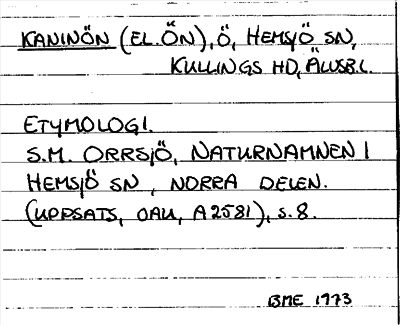 KANINÖN (EL. ÖN), Ö, HEMSJÖ SN,
KULLINGS HD, ÄLVSB.L.
ETYMOLOGI.
S.M. ORRSJÖ, NATURNAMNEN I
HEMSJÖ SN, NORRA DELEN.
(UPPSATS, OAU, A 2581), S. 8.
BME 1973